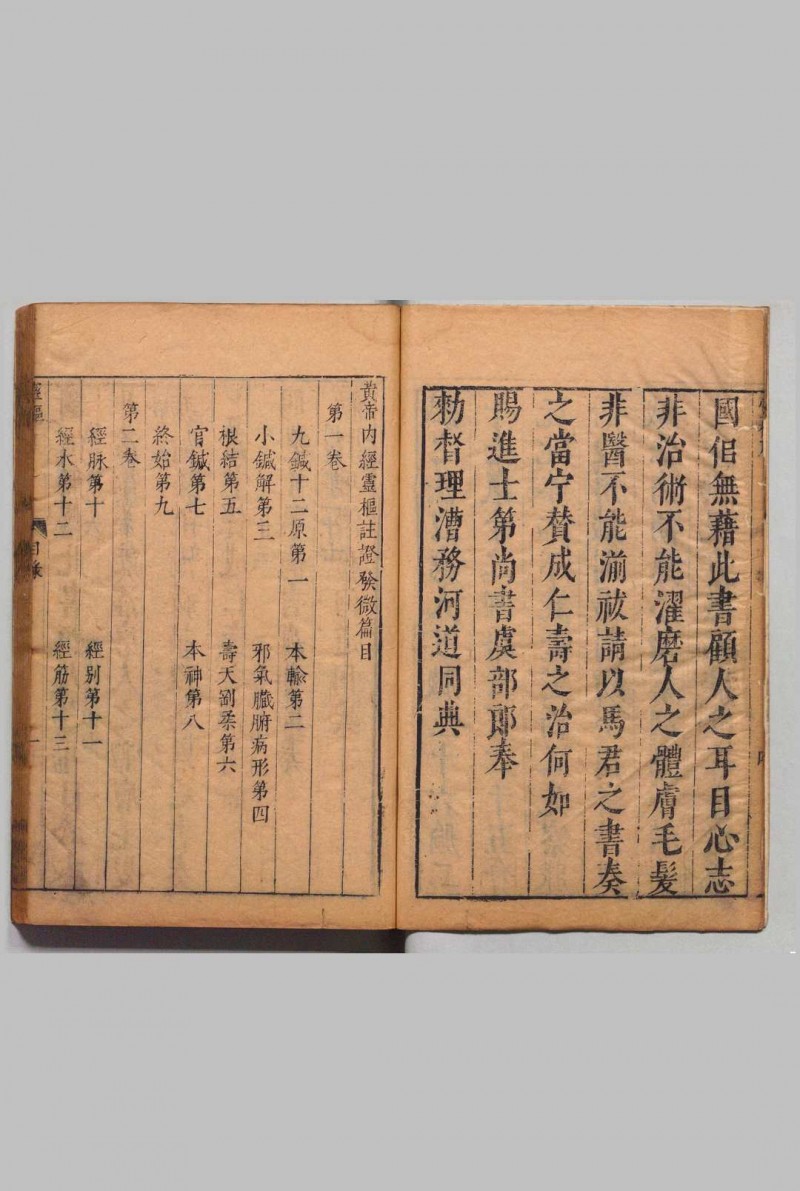 國但無藉此書顧人之耳目心志
非治術不能濯磨人之體膚毛髮
非醫不能湔祓請以馬君之書奏
之當宁贊成仁壽之治何如
賜進士第尚書虞部郎奉
勑督理漕務河道同典
黃帝內經靈樞註證發微篇目
第一卷
九鍼十二原第一 本輸第二
小鍼解第三 邪氣臟腑病形第四
根結第五 壽夭劉柔第六
官鍼第七 本神第八
終始第九
第二卷
經脉第十 經別第十一
經水第十二 經筋第十三
靈樞 目錄 一